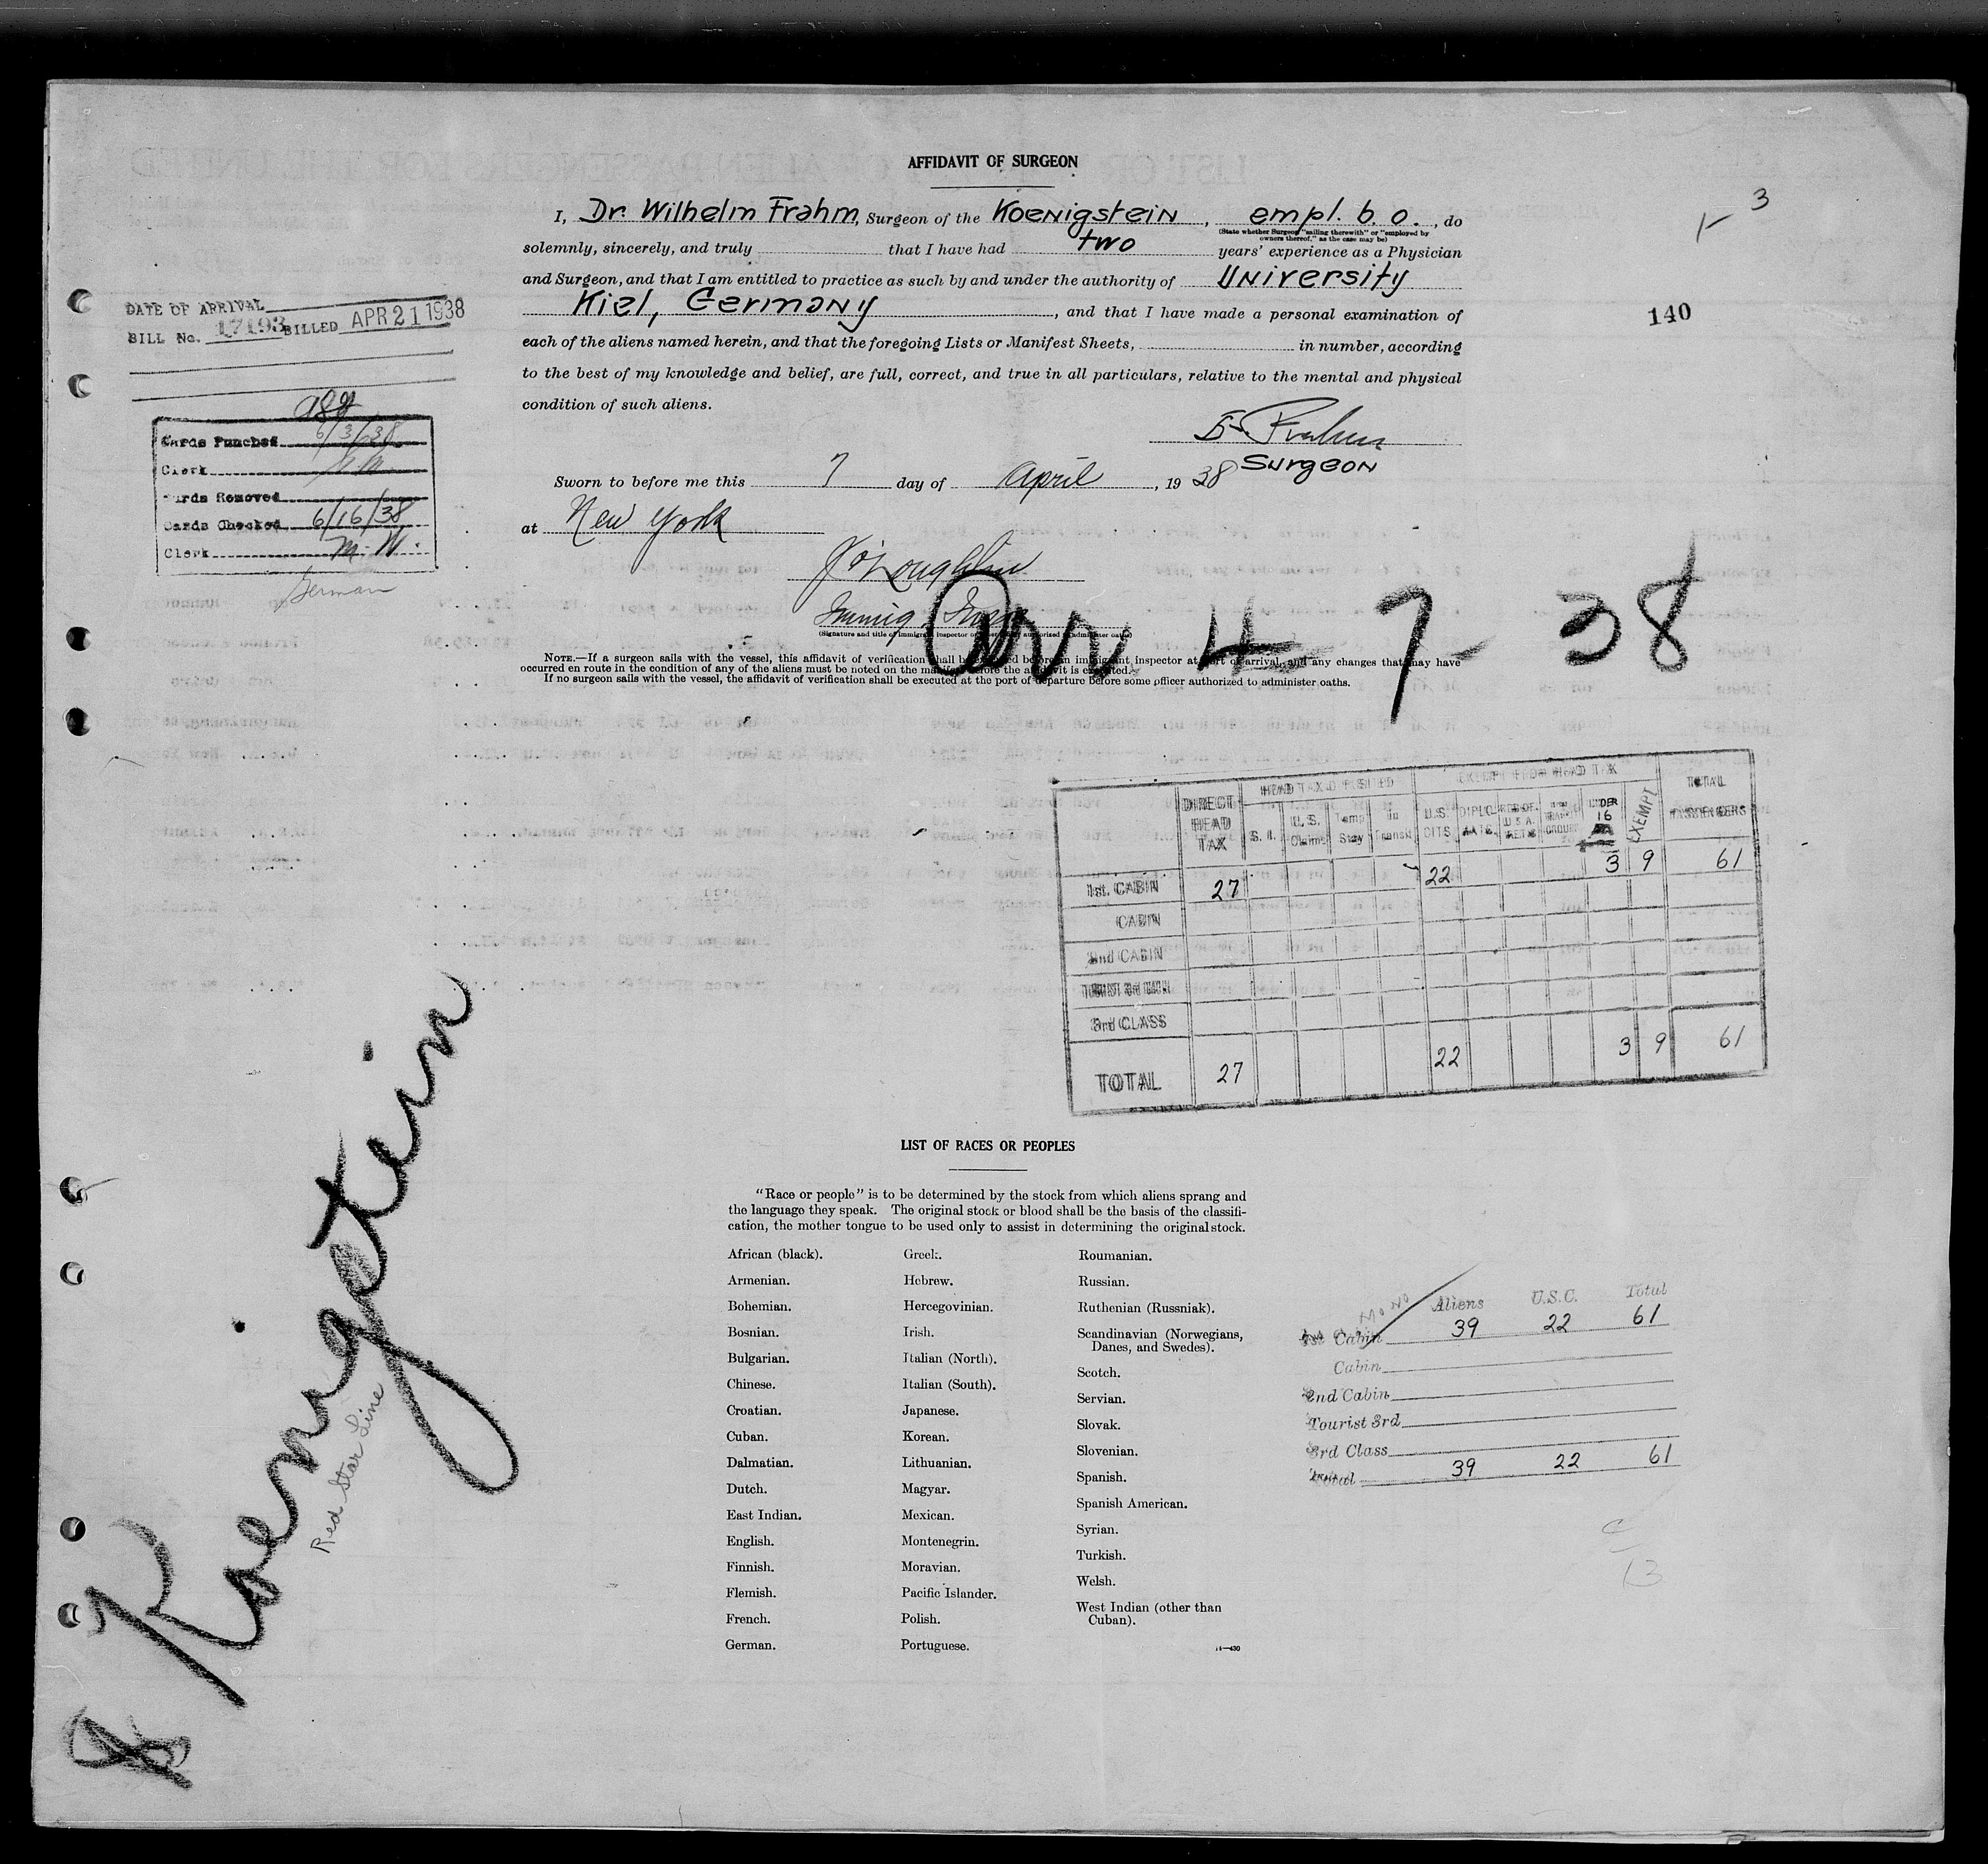 AFFIDAVIT OF SURGEON
I, Dr. Wilhelm Frahm, Surgeon of the Koenigstein, empl. b. o., do
(State whether Surgeon "sailing therewith" or "employed by
owners thereof," as the case may be)
solemnly, sincerely, and truly that I have had two years' experience as a Physician
and Surgeon, and that I am entitled to practice as such by and under the authority of University
Kiel, Germany, and that I have made a personal examination of
each of the aliens named herein, and that the foregoing Lists or Manifest Sheets, in number, according
to the best of my knowledge and belief, are full, correct, and true in all particulars, relative to the mental and physical
condition of such aliens.
Surgeon
Sworn to before me this 7 day of April, 1938
at New York
J O'Loughlin
Immig.
(Signature and title of immigrant inspector or authorized to administer oaths)
Arr 4-7-38
NOTE.—If a surgeon sails with the vessel, this affidavit of verification shall be executed before an immigrant inspector at port of arrival, and any changes that may have
occurred en route in the condition of any of the aliens must be noted on the manifest before the affidavit is executed.
If no surgeon sails with the vessel, the affidavit of verification shall be executed at the port of departure before some officer authorized to administer oaths.
3
140
DATE OF ARRIVAL
BILL No. 17193 BILLED APR 21 1938
Cards Punched 6/3/38
Clerk
Cards Removed
Cards Checked 6/16/38
Clerk M. W.
German
DIRECT HEAD TAX
HEAD TAX DEPOSITED
S. I.
U. S. Claims
Temp Stay
In Transit
EXEMPT FROM HEAD TAX
U.S. CITS
DIPLO
UNDER 16
EXEMPT
TOTAL PASSENGERS
1st. CABIN 27 22 3 9 61
CABIN
2nd CABIN
3rd CLASS
TOTAL 27 22 3 9 61
LIST OF RACES OR PEOPLES
"Race or people" is to be determined by the stock from which aliens sprang and
the language they speak. The original stock or blood shall be the basis of the classifi-
cation, the mother tongue to be used only to assist in determining the original stock.
African (black).
Armenian.
Bohemian.
Bosnian.
Bulgarian.
Chinese.
Croatian.
Cuban.
Dalmatian.
Dutch.
East Indian.
English.
Finnish.
Flemish.
French.
German.
Greek.
Hebrew.
Hercegovinian.
Irish.
Italian (North).
Italian (South).
Japanese.
Korean.
Lithuanian.
Magyar.
Mexican.
Montenegrin.
Moravian.
Pacific Islander.
Polish.
Portuguese.
Roumanian.
Russian.
Ruthenian (Russniak).
Scandinavian (Norwegians,
Danes, and Swedes).
Scotch.
Servian.
Slovak.
Slovenian.
Spanish.
Spanish American.
Syrian.
Turkish.
Welsh.
West Indian (other than
Cuban).
14—430
Aliens U.S.C. Total
1st Cabin 39 22 61
Cabin
2nd Cabin
Tourist 3rd
3rd Class
Total 39 22 61
Koenigstein
Red Star Line